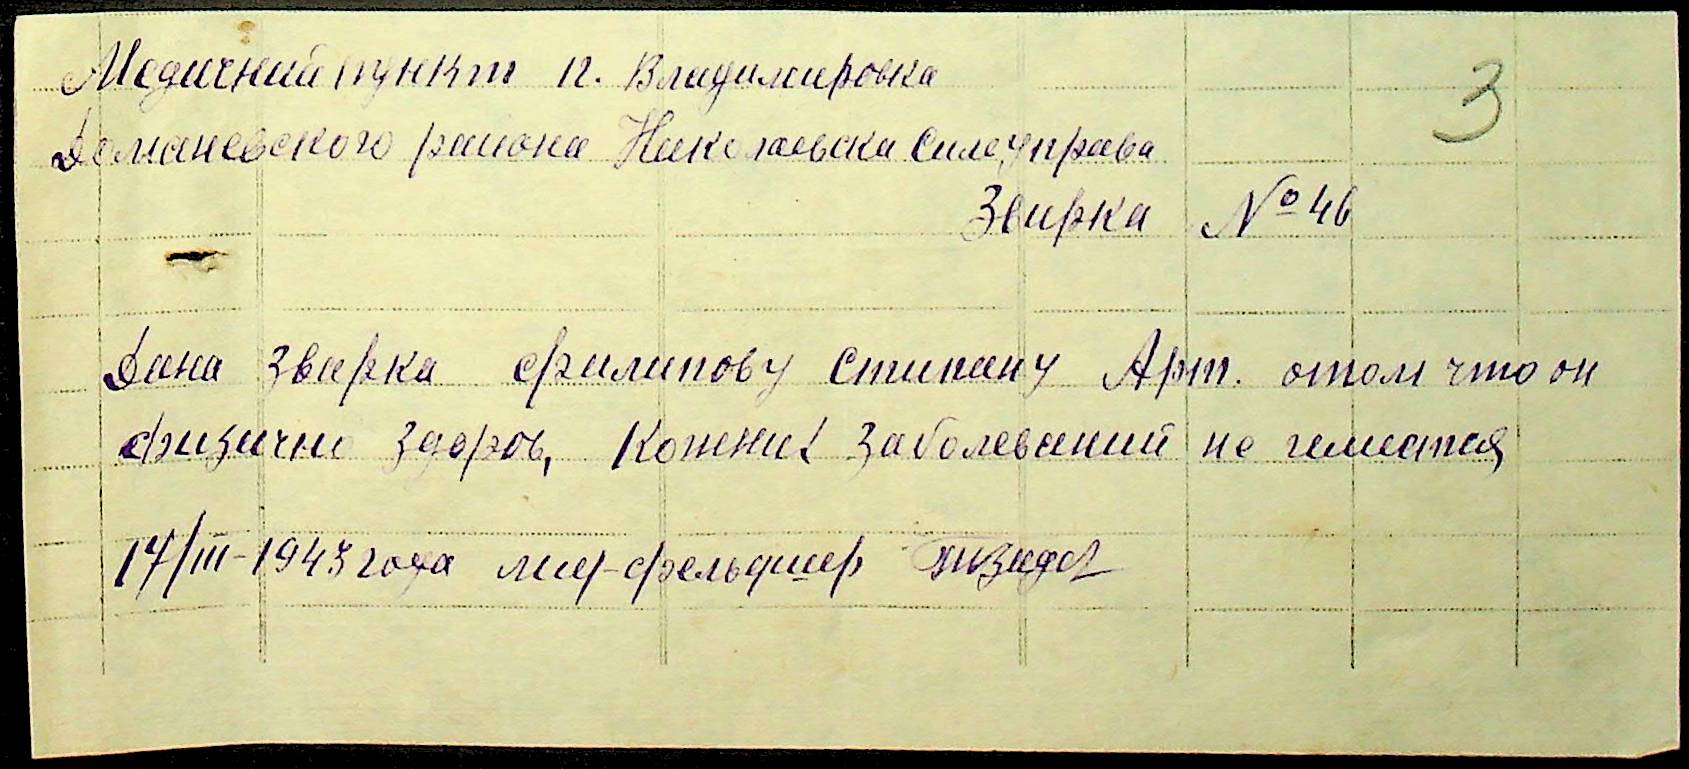 Медичний пункт п. Владимировка
3
Доманевского района Николаевска Силеуправа
Звирка № 46
Дана Звирка Филипову Стипану Арт. отом что он
физично здоров, Кожних Заболеваний не имеится
17/III-1943 года мед-фельдшер